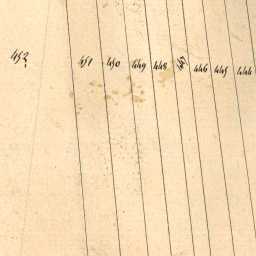 452 451 450 449 448 447 446 445 444